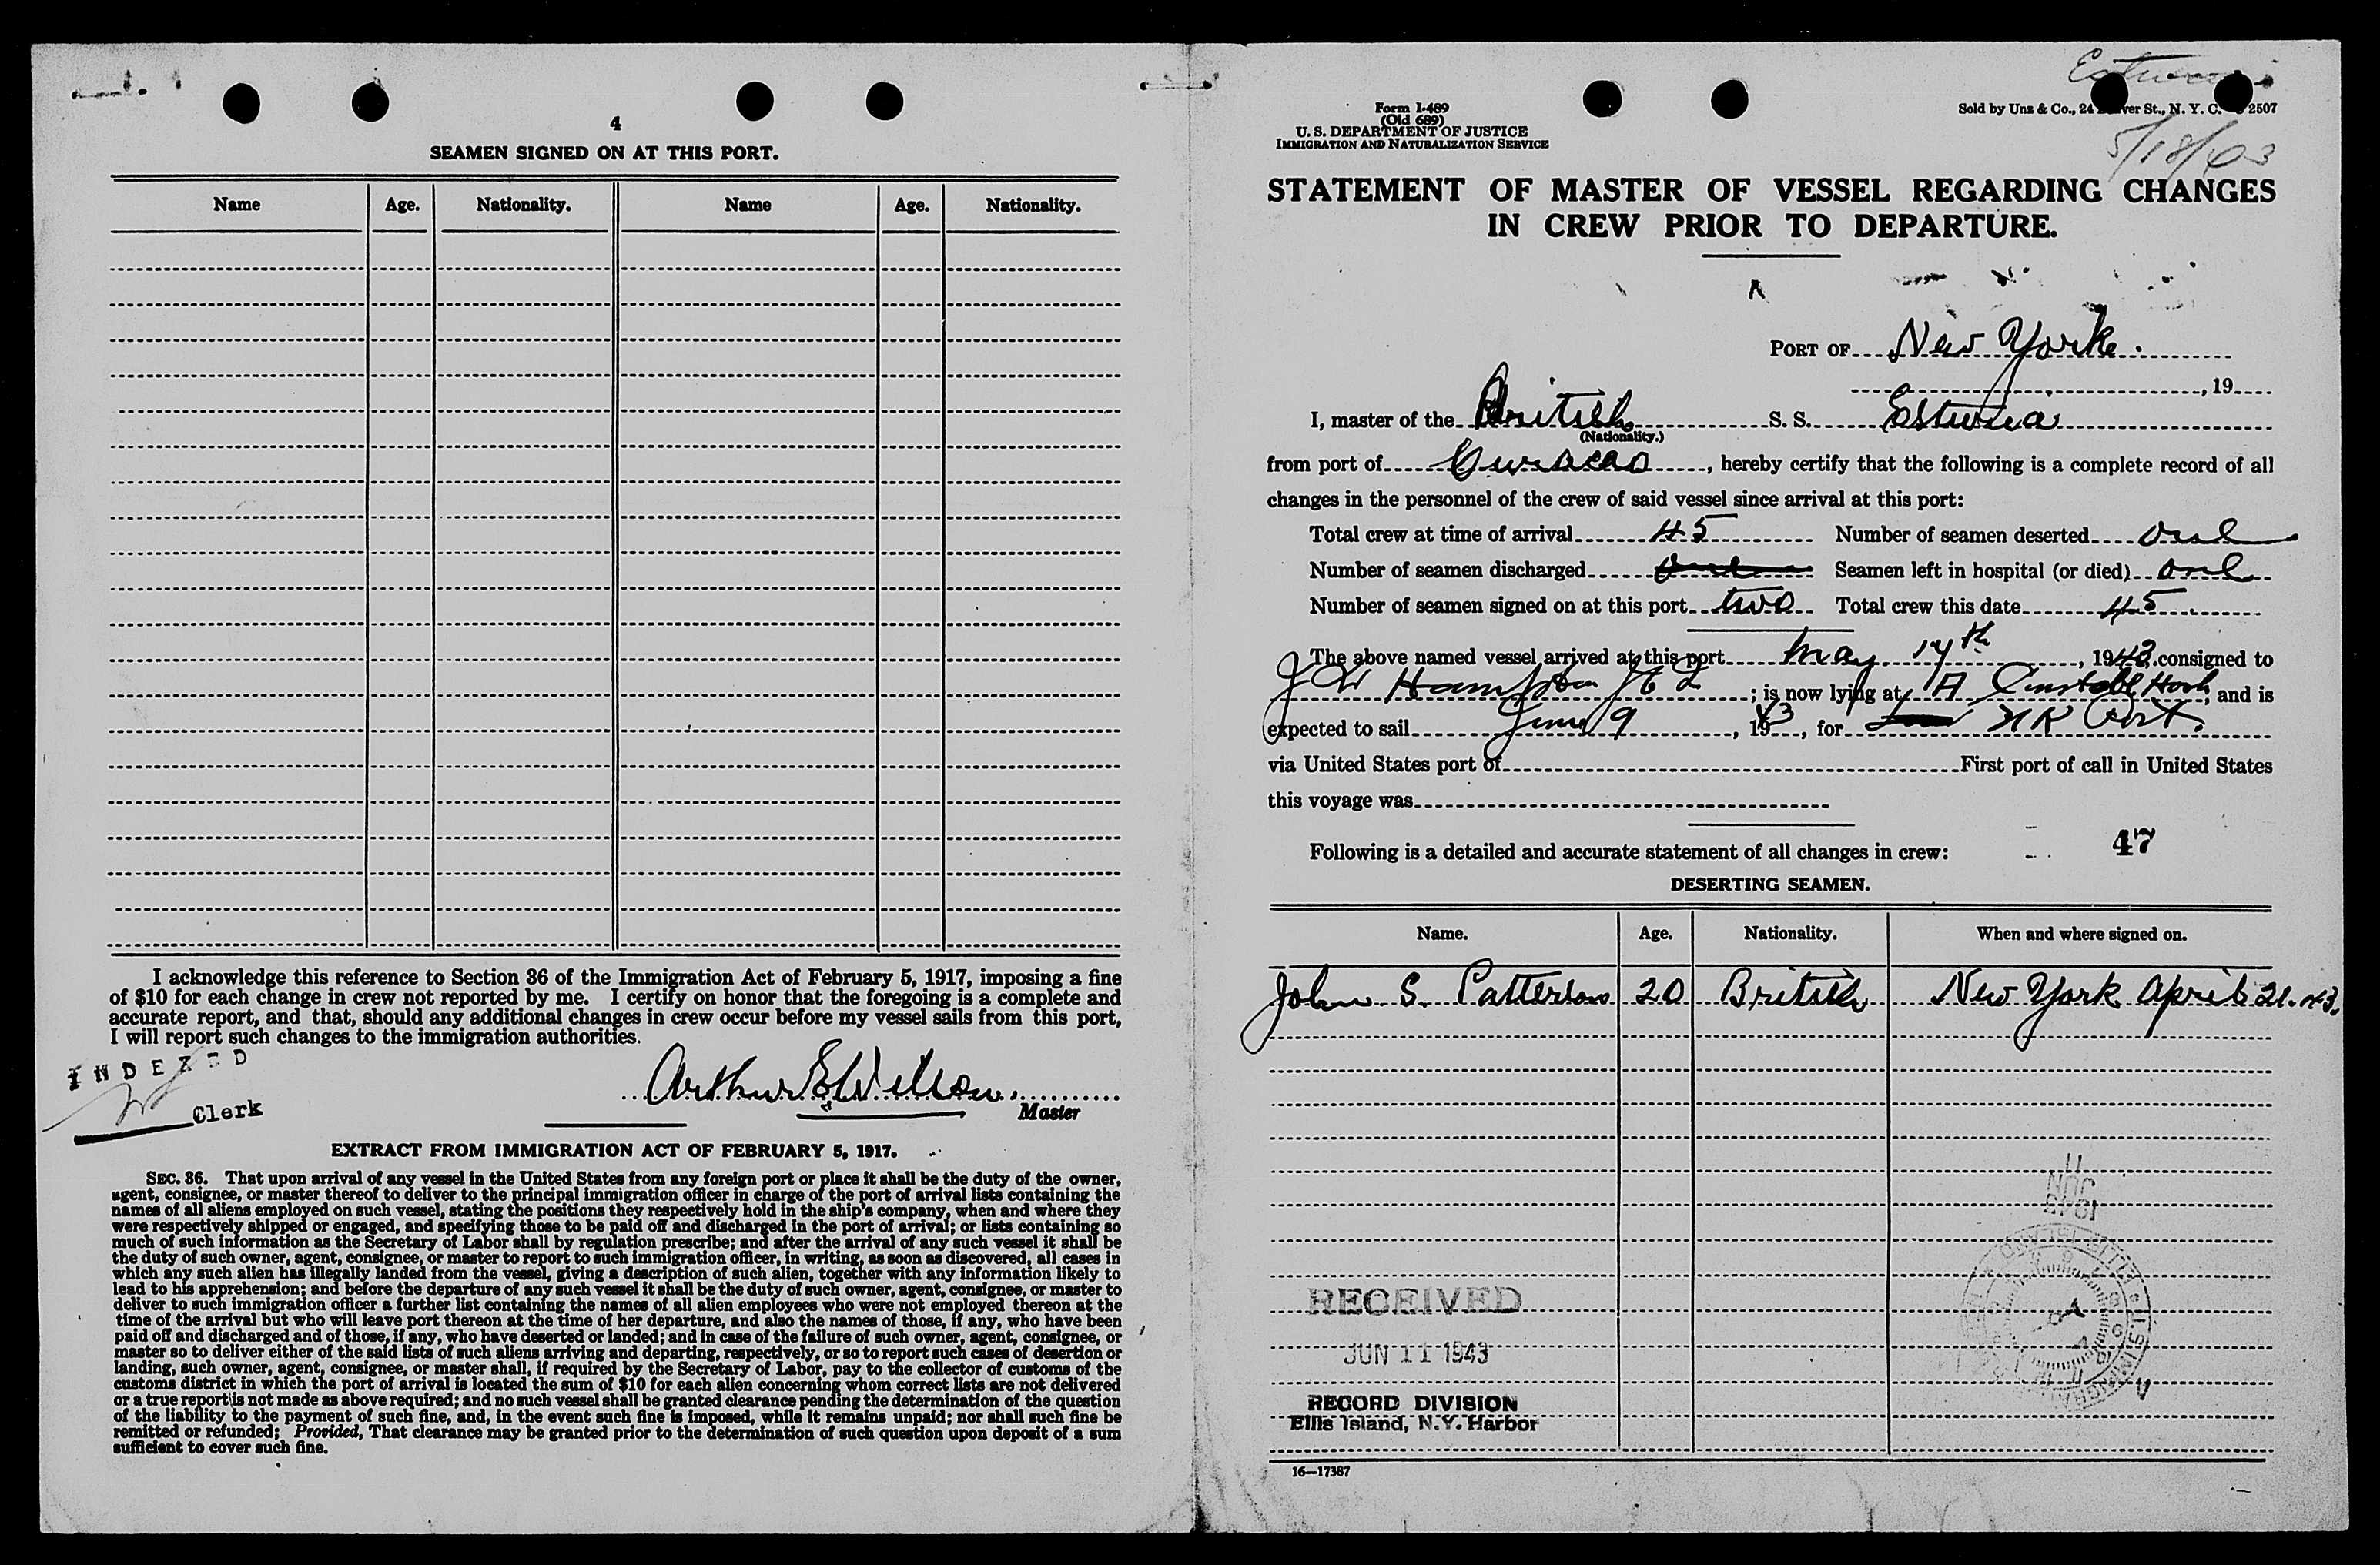 4
SEAMEN SIGNED ON AT THIS PORT.
Name Age. Nationality. Name Age. Nationality.
I acknowledge this reference to Section 36 of the Immigration Act of February 5, 1917, imposing a fine
of $10 for each change in crew not reported by me. I certify on honor that the foregoing is a complete and
accurate report, and that, should any additional changes in crew occur before my vessel sails from this port,
I will report such changes to the immigration authorities.
INDEXED
Clerk
Arthur E Wilson
Master
EXTRACT FROM IMMIGRATION ACT OF FEBRUARY 5, 1917.
SEC. 36. That upon arrival of any vessel in the United States from any foreign port or place it shall be the duty of the owner,
agent, consignee, or master thereof to deliver to the principal immigration officer in charge of the port of arrival lists containing the
names of all aliens employed on such vessel, stating the positions they respectively hold in the ship's company, when and where they
were respectively shipped or engaged, and specifying those to be paid off and discharged in the port of arrival; or lists containing so
much of such information as the Secretary of Labor shall by regulation prescribe; and after the arrival of any such vessel it shall be
the duty of such owner, agent, consignee, or master to report to such immigration officer, in writing, as soon as discovered, all cases in
which any such alien has illegally landed from the vessel, giving a description of such alien, together with any information likely to
lead to his apprehension; and before the departure of any such vessel it shall be the duty of such owner, agent, consignee, or master to
deliver to such immigration officer a further list containing the names of all alien employees who were not employed thereon at the
time of the arrival but who will leave port thereon at the time of her departure, and also the names of those, if any, who have been
paid off and discharged and of those, if any, who have deserted or landed; and in case of the failure of such owner, agent, consignee, or
master so to deliver either of the said lists of such aliens arriving and departing, respectively, or so to report such cases of desertion or
landing, such owner, agent, consignee, or master shall, if required by the Secretary of Labor, pay to the collector of customs of the
customs district in which the port of arrival is located the sum of $10 for each alien concerning whom correct lists are not delivered
or a true report is not made as above required; and no such vessel shall be granted clearance pending the determination of the question
of the liability to the payment of such fine, and, in the event such fine is imposed, while it remains unpaid; nor shall such fine be
remitted or refunded; Provided, That clearance may be granted prior to the determination of such question upon deposit of a sum
sufficient to cover such fine.
Form I-489
(Old 689)
U. S. DEPARTMENT OF JUSTICE
IMMIGRATION AND NATURALIZATION SERVICE
Sold by Unz & Co., 24 St., N. Y. C. 2507
5/18/43
STATEMENT OF MASTER OF VESSEL REGARDING CHANGES
IN CREW PRIOR TO DEPARTURE.
PORT OF New York.
, 19
I, master of the British S. S.
(Nationality.)
from port of Curacao, hereby certify that the following is a complete record of all
changes in the personnel of the crew of said vessel since arrival at this port:
Total crew at time of arrival 45 Number of seamen deserted one
Number of seamen discharged one Seamen left in hospital (or died) one
Number of seamen signed on at this port two Total crew this date 45
The above named vessel arrived at this port May 17th, 1943 consigned to
J W Hampton Jr ; is now lying at , and is
expected to sail June 9, 1943, for UK Port.
via United States port of First port of call in United States
this voyage was
Following is a detailed and accurate statement of all changes in crew: 47
DESERTING SEAMEN.
Name. Age. Nationality. When and where signed on.
John S. Patterson 20 British New York April 21. 43.
11
JUN
1943
RECEIVED
JUN 11 1943
RECORD DIVISION
Ellis Island, N.Y. Harbor
16—17387